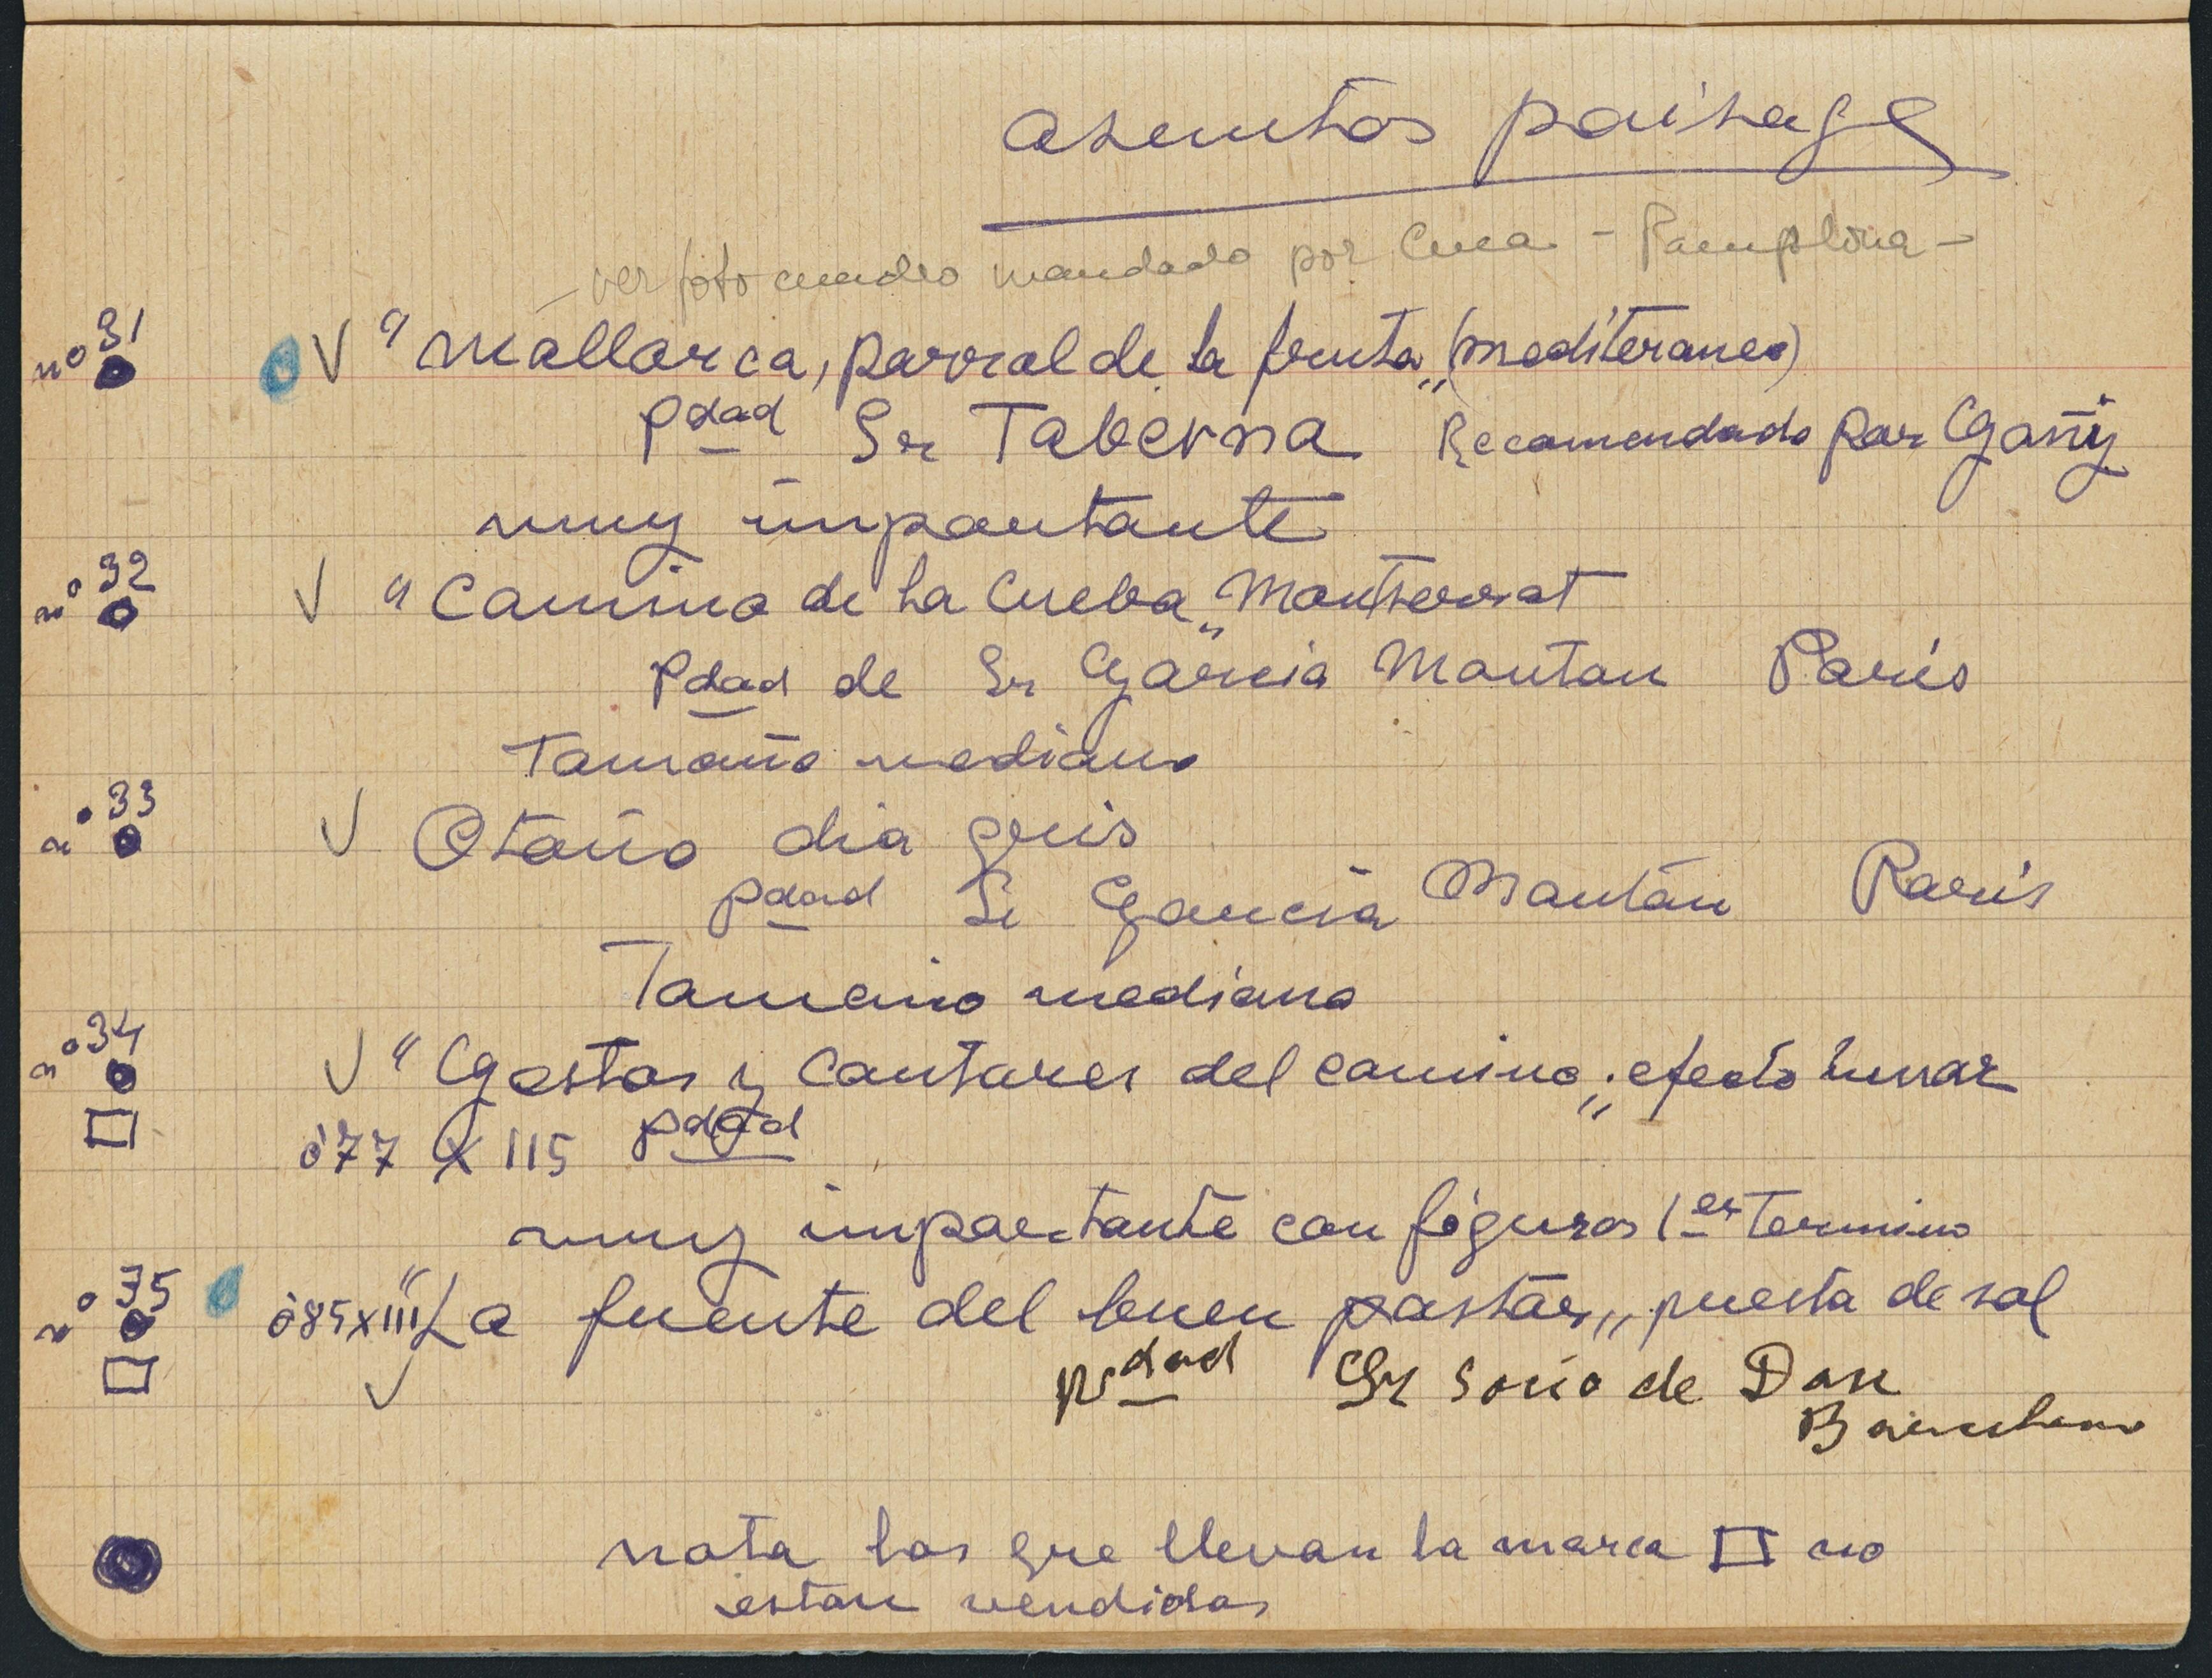 asuntos paisage
- ver foto cuadro mandado por Cuca - Pamplona -
nº 31 V "Mallarca, parral de la fruta„ (mediteraneo)
Pdad Sr Taberna Recomendado por Gañi
muy importante
nº 32 V "Camino de la Cueba„ Montserrat
Pdad de Sr Garcia Montan Paris
Tamaño mediano
nº 33 V Otoño dia gris
Pdad Sr Garcia Montán Paris
Tamaño mediano
nº 34 V "Gestas y Cantares del camino„ efecto lunar
0'77 X 115 pdad
muy importante con figuras 1er Termino
nº 35 0'85 x 111 "La fuente del buen pastor„ puesta de sol
V Prdad Sr Sorio de Don
nota los que llevan la marca □ no
estan vendidos